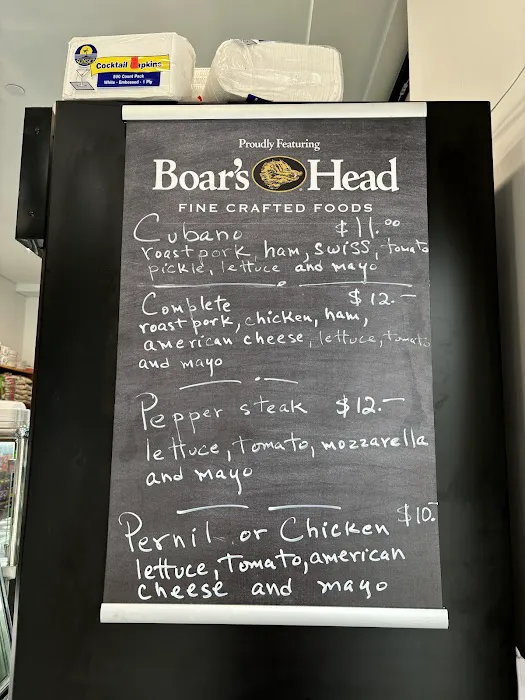 Cocktail Napkins
500 Count Pack
White - Embossed - 1 Ply
Proudly Featuring
Boar's Head
FINE CRAFTED FOODS
Cubano $11.00
roast pork, ham, swiss, tomato
pickle, lettuce and mayo
Complete $12.-
roast pork, chicken, ham,
american cheese, lettuce, tomato
and mayo
Pepper steak $12.-
lettuce, tomato, mozzarella
and mayo
Pernil or Chicken $10.-
lettuce, Tomato, american
cheese and mayo